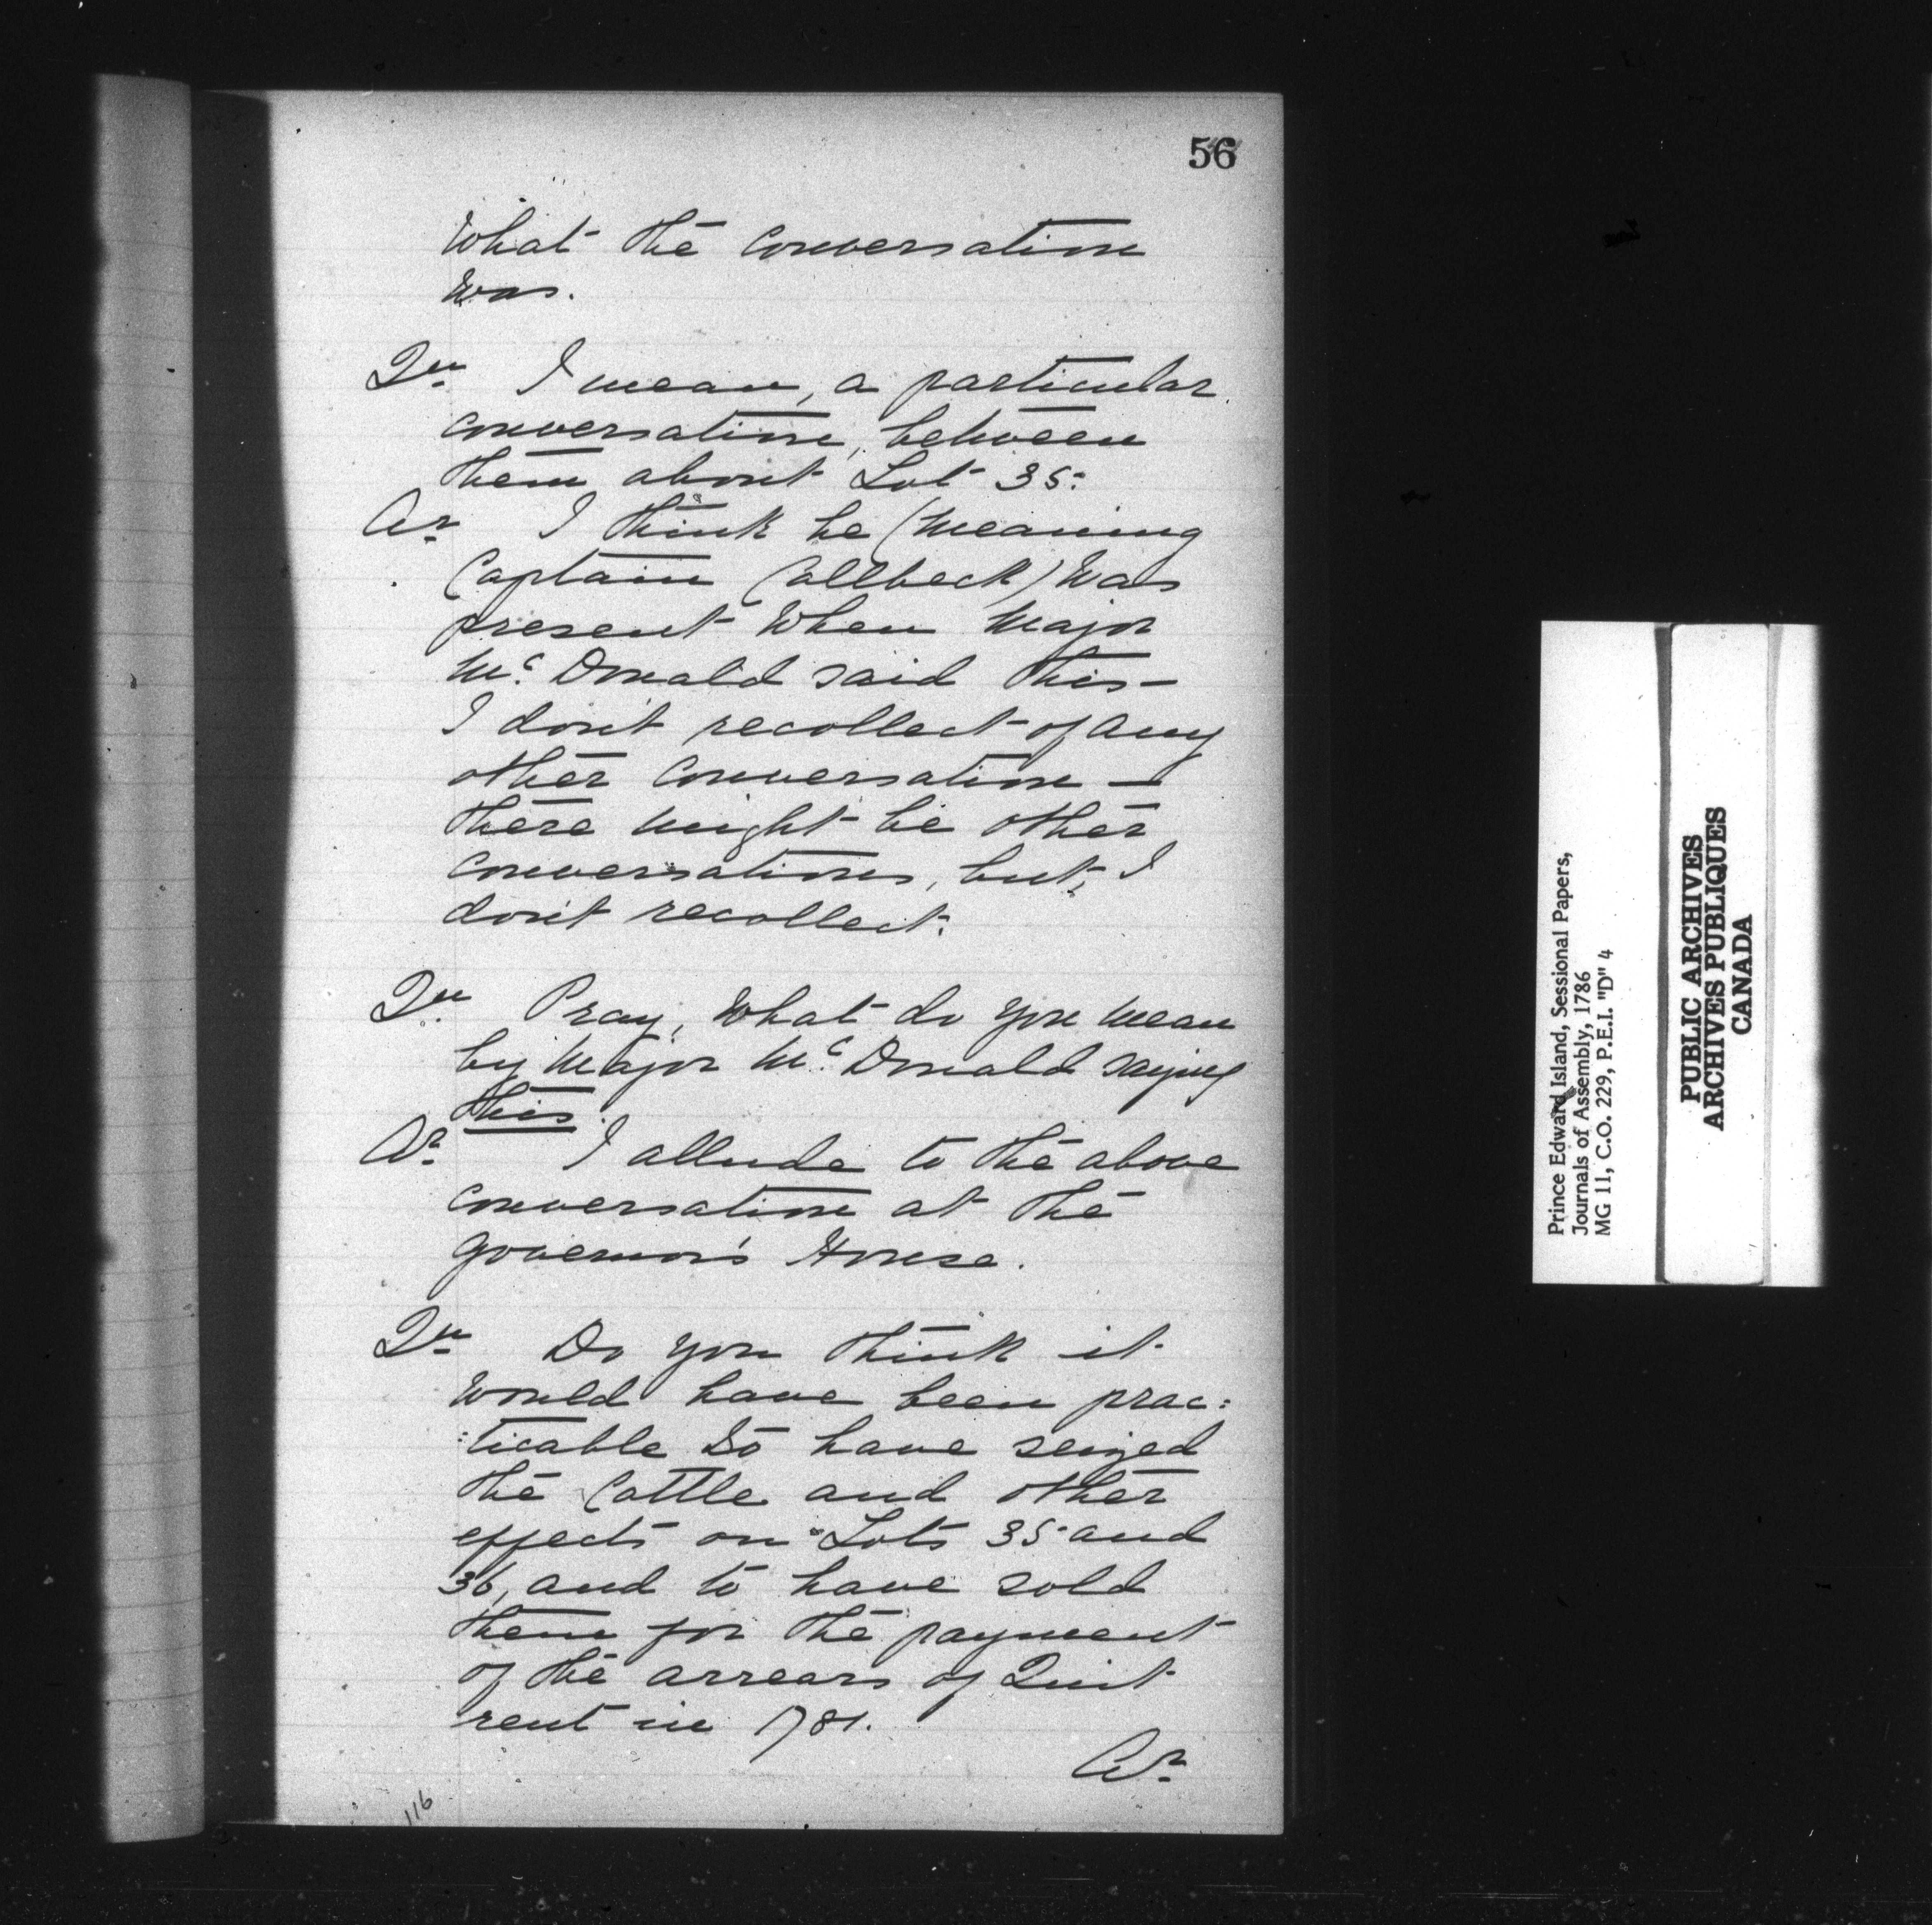 56
What the Conversation
Was.
Qu. I mean, a particular
conversation, between
them about Lot 35.
Ar. I think he (meaning
Captain Callbeck) Was
present When Major
Mc. Donald said this—
I don't recollect of any
other Conversation —
there might be other
conversations, but, I
don't recollect.
Qu. Pray, What do you mean
by Major Mc. Donald saying
this.
Ar. I allude to the above
conversation at the
Governor's House.
Qu. Do you think it
would have been prac:
:ticable to have seized
the Cattle and other
effects on Lots 35 and
36, and to have sold
them for the payment
of the arrears of Quit
rent in 1781.
Ar.
116
Prince Edward Island, Sessional Papers,
Journals of Assembly, 1786
MG 11, C.O. 229, P.E.I. "D" 4
PUBLIC ARCHIVES
ARCHIVES PUBLIQUES
CANADA